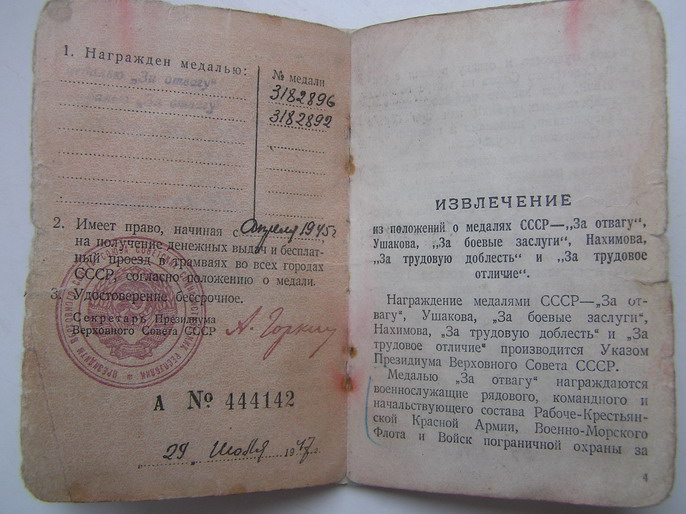 1. Награжден медалью:
№ медали
медалью „За отвагу“ 3182896
„За отвагу 3182892
2. Имеет право, начиная с апреля 1945 г.
на получение денежных выдач и бесплат-
ный проезд в трамваях во всех городах
СССР, согласно положению о медали.
3. Удостоверение бессрочное.
Секретарь Президиума
Верховного Совета СССР А. Горкин
А № 444142
29 1947 г.
ИЗВЛЕЧЕНИЕ
из положений о медалях СССР—„За отвагу“,
Ушакова, „За боевые заслуги“, Нахимова,
„За трудовую доблесть“ и „За трудовое
отличие“.
Награждение медалями СССР—„За от-
вагу“, Ушакова, „За боевые заслуги“,
Нахимова, „За трудовую доблесть“ и „За
трудовое отличие“ производится Указом
Президиума Верховного Совета СССР.
Медалью „За отвагу“ награждаются
военнослужащие рядового, командного и
начальствующего состава Рабоче-Крестьян-
ской Красной Армии, Военно-Морского
Флота и Войск пограничной охраны за
4